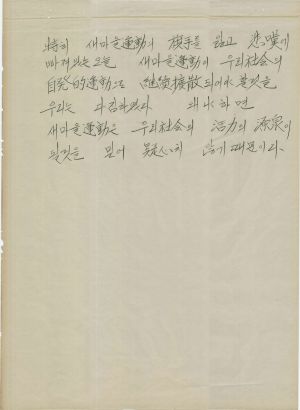 特히 새마을運動의 旗手를 잃고 悲嘆에
빠져있는 오늘 새마을運動이 우리社会의
自発的運動으로 継続擴散되어야 할것을
우리는 다짐하였다 왜냐하면
새마을運動은 우리社会의 活力의 源泉이
될것을 믿어 疑心치 않기 때문이다.